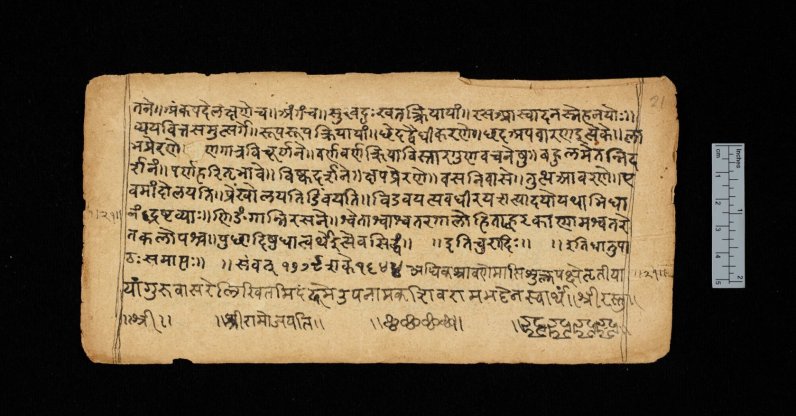 तने॥अंकपदेलक्षणेच॥अंगंच॥सुखदुःखतत्क्रियायां॥रसआस्वादनस्नेहनयोः॥ 21
व्ययवित्तसमुत्सर्गे॥रूपरूपक्रियायां॥छेदद्वैधीकरणे॥छदअपवारणइत्येके॥ला
भप्रेरणे॥ व्रणगात्रविचूर्णने॥वर्णवर्णक्रियाविस्तारगुणवचनेषु॥बहुलमेतन्निद
र्शनं॥पर्णहरितभावे॥विष्कदर्शने॥क्षपप्रेरणे॥वसनिवासे॥तुत्थआवरणे॥ए
वमांदोलयति॥प्रेंखोलयतिविडंवयति॥ यथाभिधा
॥२१॥ नंद्रष्टव्याः॥णिङंगान्निरसने॥श्वेताश्वाश्वतरगालोडिताह्वरकाणामश्वतरे
तकलोपश्च॥पुच्छादिषुधात्वर्थइत्येवसिद्धं॥ ॥इतिचुरादिः॥ ॥इतिधातुपा
ठःसमाप्तः॥ ॥संवत् १७७९शके१६४४ अधिकश्रावणेमासिशुक्लपक्षेतृतीया ॥२१॥
यांगुरुवासरेलिखितमिदं उपनामकशिवरामभट्टेनस्वार्थं॥श्रीरस्तु॥
॥श्री॥ ॥श्रीरामोजयति॥
cm
Inches
1
2